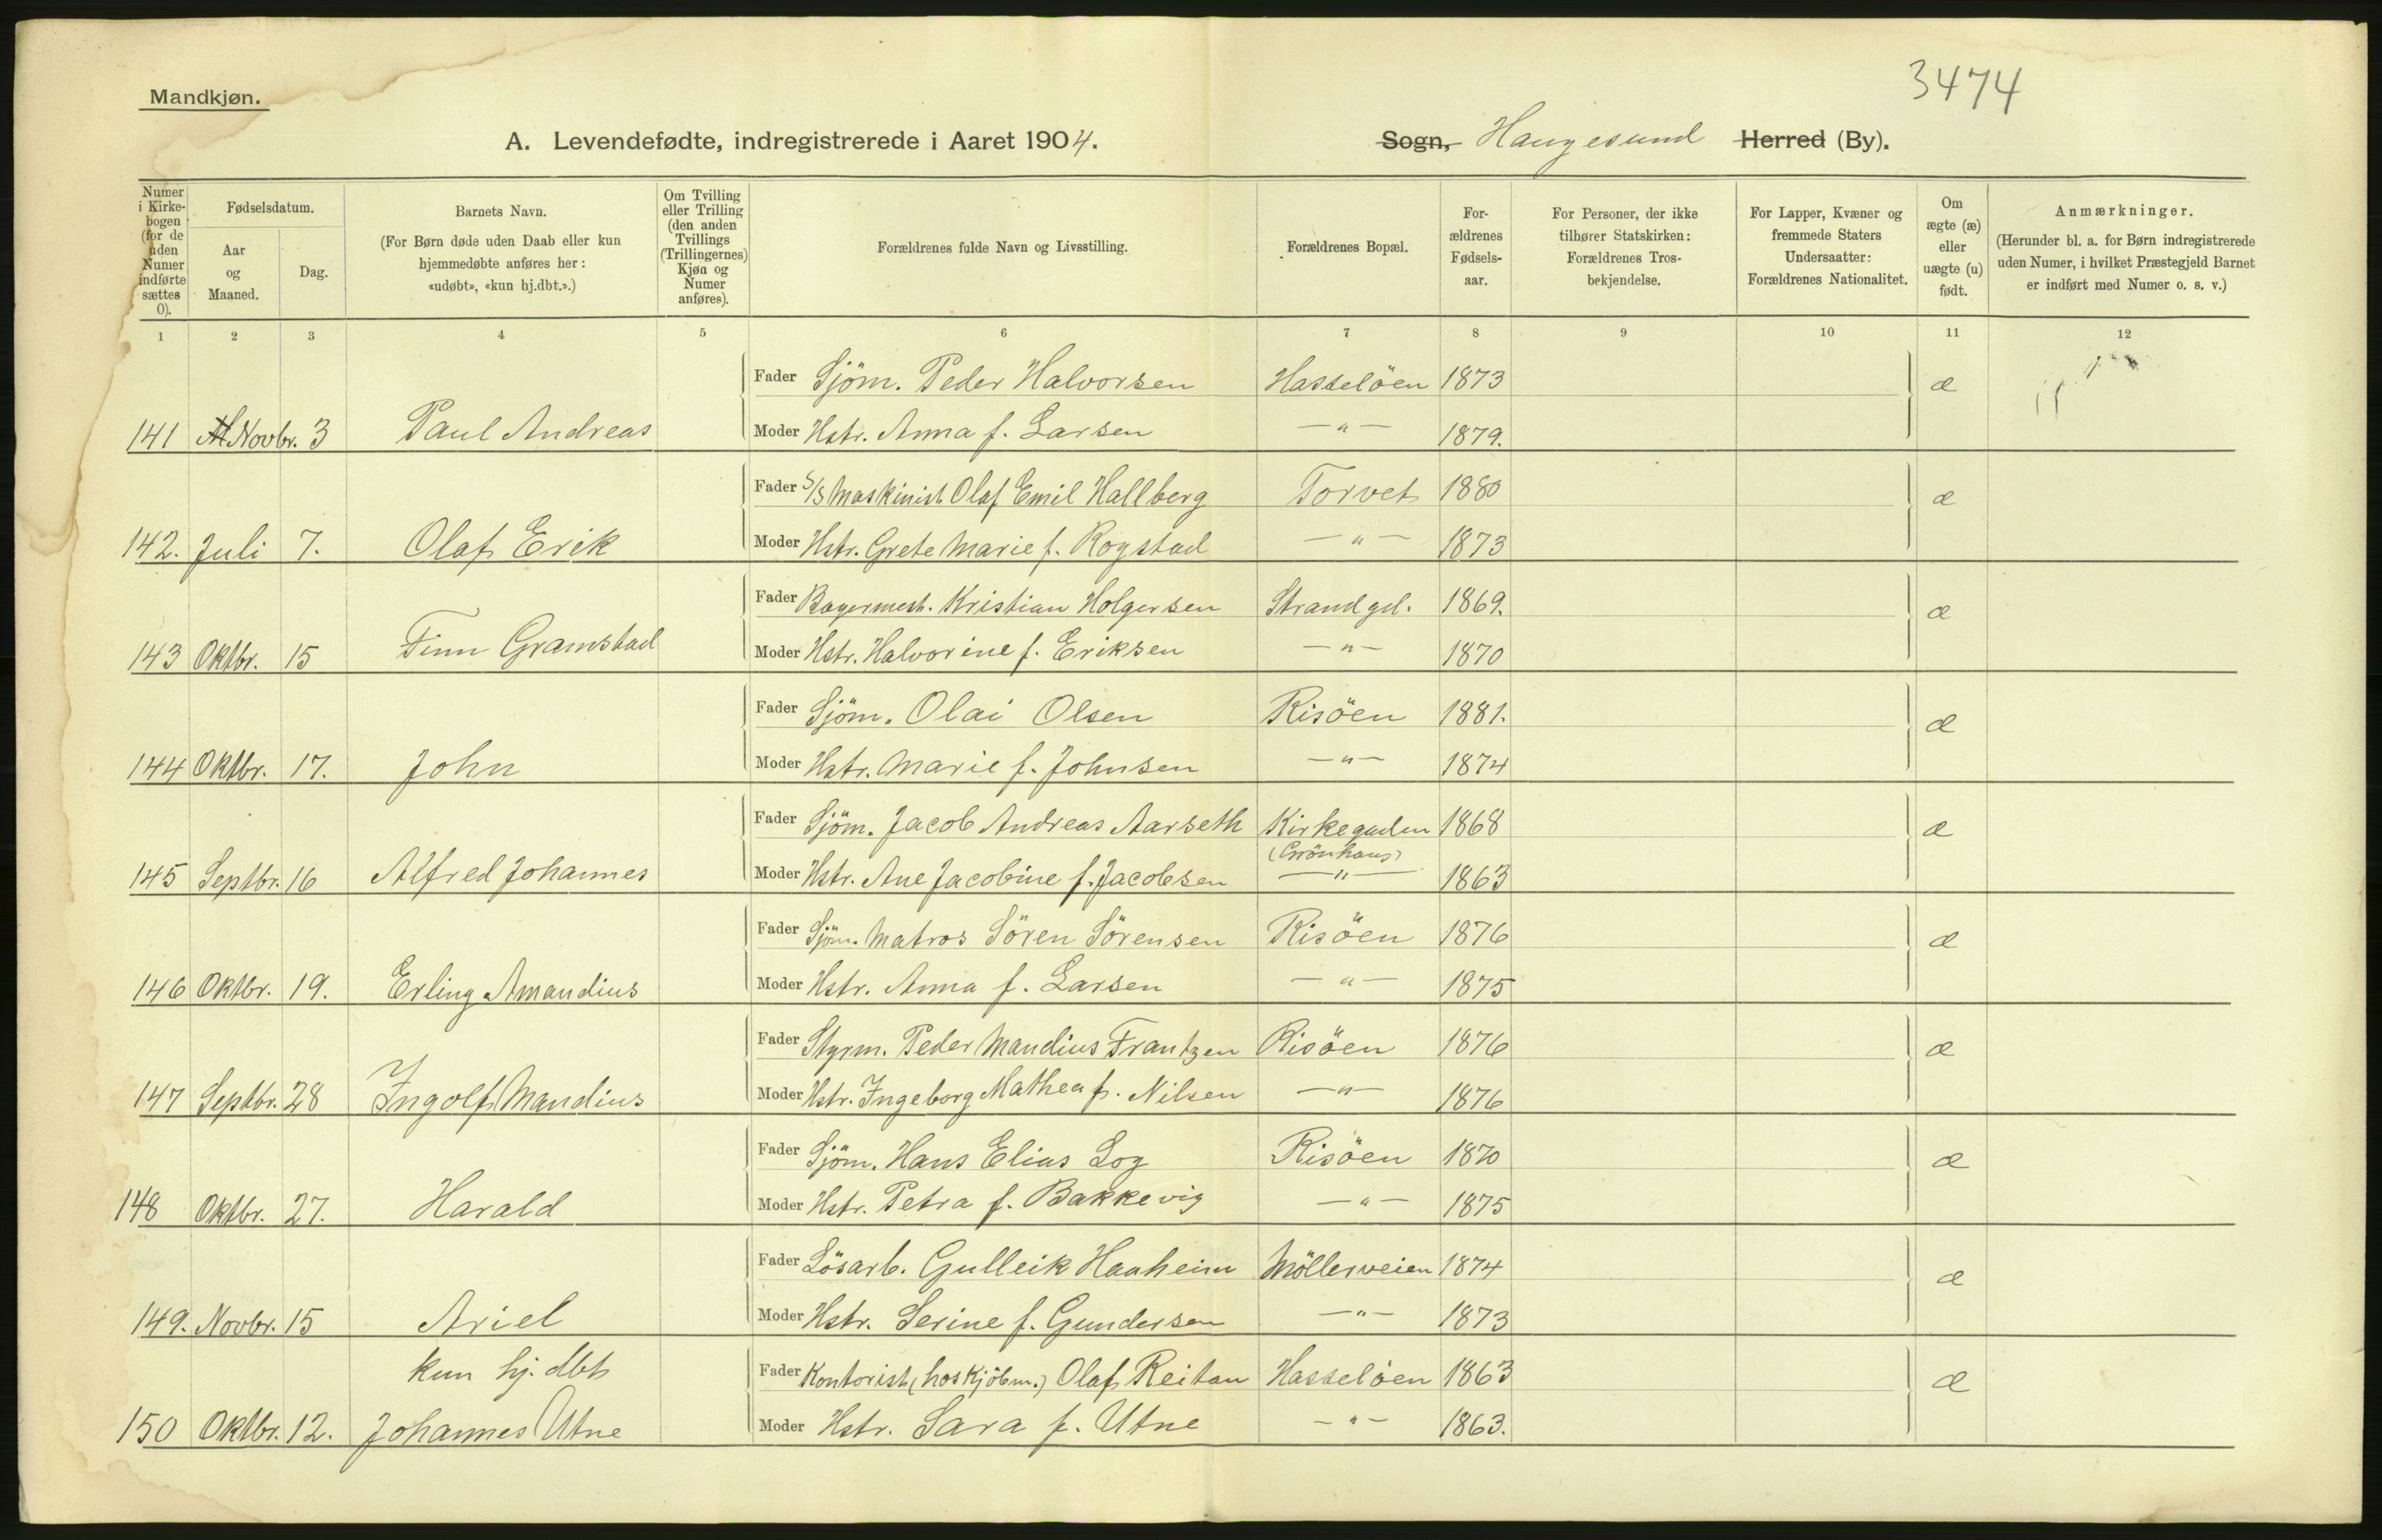 Mandkjøn.
3474
A. Levendefødte, indregistrerede i Aaret 1904.
Sogn, Haugesund Herred (By).
Numer i Kirkebogen (for de uden Numer indførte sættes 0).
Fødselsdatum.
Aar og Maaned.
Dag.
Barnets Navn.
(For Børn døde uden Daab eller kun hjemmedøbte anføres her: «udøbt», «kun hj.dbt.».)
Om Tvilling eller Trilling (den anden Tvillings (Trillingernes) Kjøn og Numer anføres).
Forældrenes fulde Navn og Livsstilling.
Forældrenes Bopæl.
Forældrenes Fødselsaar.
For Personer, der ikke tilhører Statskirken: Forældrenes Trosbekjendelse.
For Lapper, Kvæner og fremmede Staters Undersaatter: Forældrenes Nationalitet.
Om ægte (æ) eller uægte (u) født.
Anmærkninger.
(Herunder bl. a. for Børn indregistrerede uden Numer, i hvilket Præstegjeld Barnet er indført med Numer o. s. v.)
1 2 3 4 5 6 7 8 9 10 11 12
Fader Sjöm. Peder Halvorsen Hasselöen 1873 æ
141 Novbr. 3 Paul Andreas Moder Hstr. Anna f. Larsen — " — 1879.
Fader S/S Maskinist Olaf Emil Hallberg Torvet 1880 æ
142. Juli 7. Olaf Erik Moder Hstr. Grete Marie f. Rogstad — " — 1873
Fader Bagermest. Kristian Holgersen Strandgd. 1869. æ
143 Oktbr. 15 Finn Gramstad Moder Hstr. Halvorine f. Eriksen — " — 1870
Fader Sjöm. Olai Olsen Risöen 1881. æ
144 Oktbr. 17. John Moder Hstr. Marie f. Johnsen — " — 1874
Fader Sjöm. Jacob Andreas Aarseth Kirkegaden 1868 æ
(Grönhaug)
145 Septbr. 16 Alfred Johannes Moder Hstr. Ane Jacobine f. Jacobsen — " — 1863
Fader Sjöm. Matros Sören Sörensen Risöen 1876 æ
146 Oktbr. 19. Erling Amandius Moder Hstr. Anna f. Larsen — " — 1875
Fader Styrm. Peder Mandius Frantzen Risöen 1876 æ
147 Septbr. 28 Ingolf Mandius Moder Hstr. Ingeborg Mathea f. Nilsen — " — 1876
Fader Sjöm. Hans Elias Log Risöen 1870 æ
148 Oktbr. 27. Harald Moder Hstr. Petra f. Bakkevig — " — 1875
Fader Lösarb. Gulleik Haaheim Möllerveien 1874 æ
149. Novbr. 15 Ariel Moder Hstr. Serine f. Gundersen — " — 1873
kun hj. dbt Fader Kontorist (hos Kjöbm.) Olaf Reitan Hasselöen 1863 æ
150 Oktbr. 12. Johannes Utne Moder Hstr. Sara f. Utne — " — 1863.